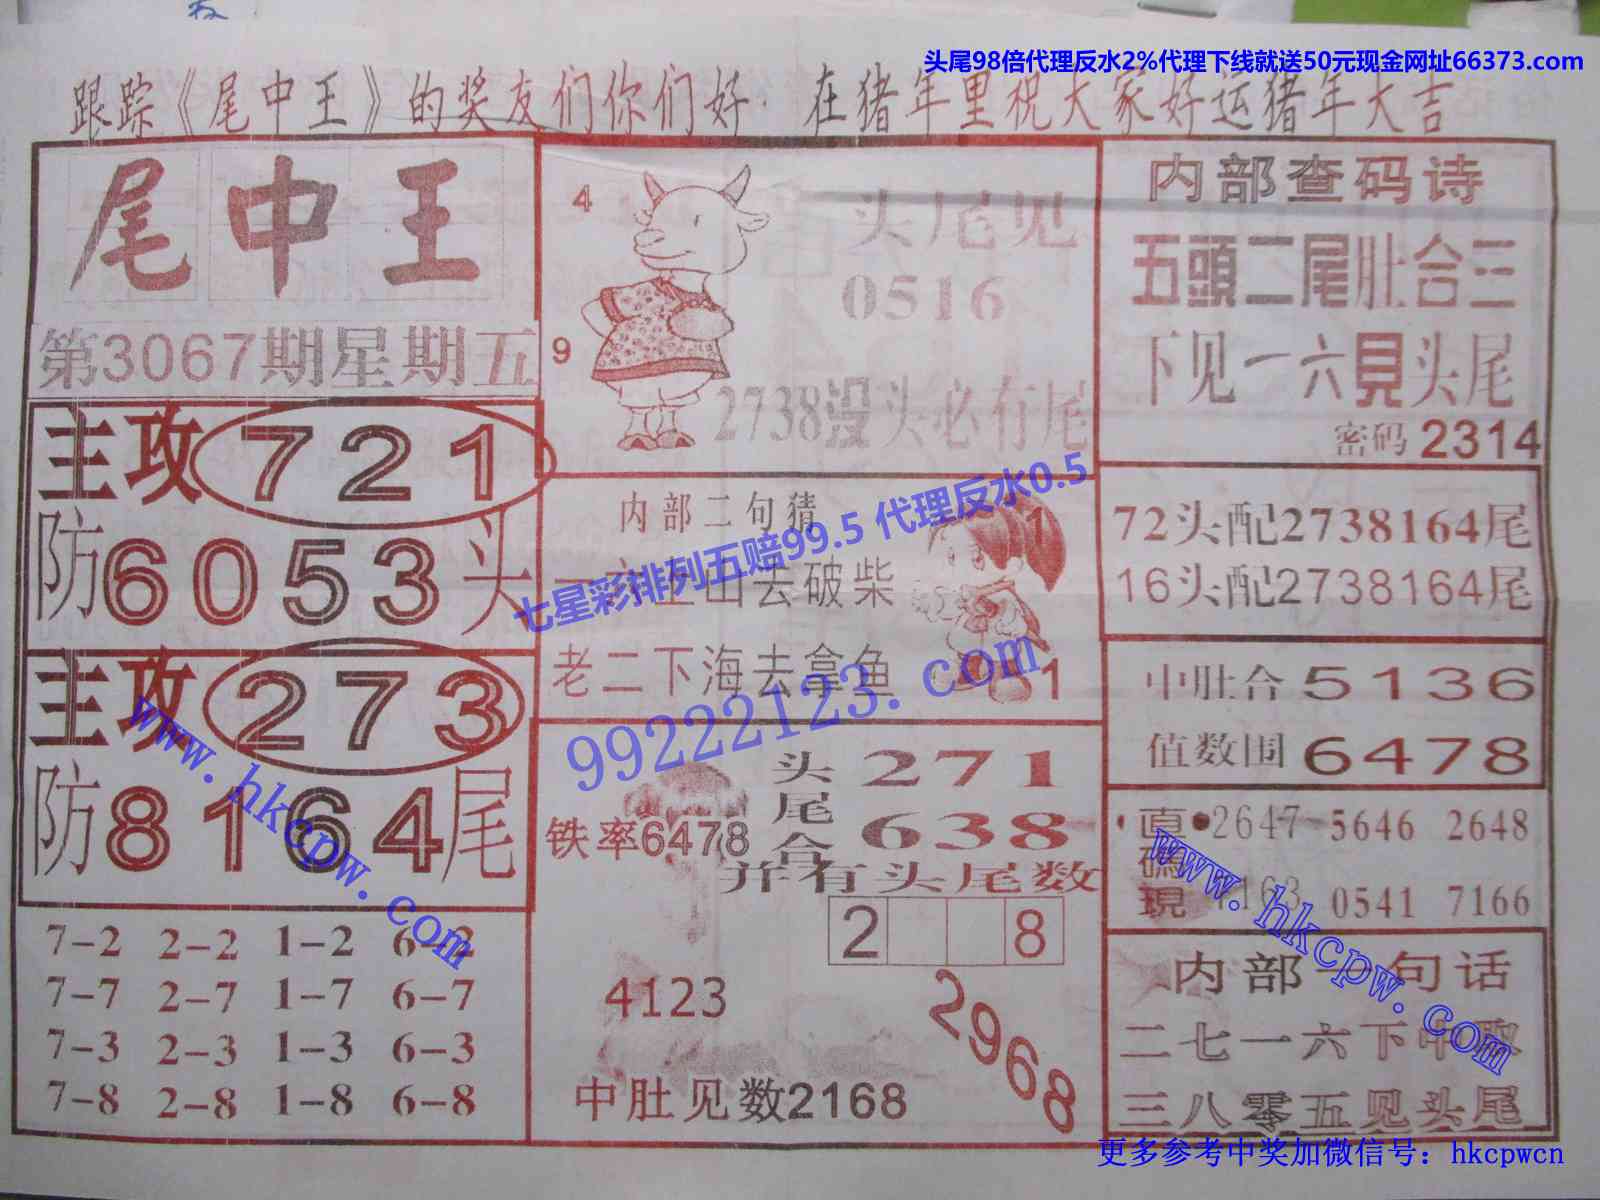 头尾98倍代理反水2%代理下线就送50元现金网址66373.com
跟踪《尾中王》的奖友们你们好. 在猪年里祝大家好运猪年大吉
尾中王
第3067期星期五
主攻721
防6053头
主攻273
防8164尾
7-2 2-2 1-2 6-2
7-7 2-7 1-7 6-7
7-3 2-3 1-3 6-3
7-8 2-8 1-8 6-8
4
9
头尾见
0516
2738没头必有尾
内部二句猜
上山去破柴
老二下海去拿鱼
1
1
七星彩排列五赔99.5 代理反水0.5
99222123.com
头尾合
271
638
铁率6478
并有头尾数
2 8
4123
2968
中肚见数2168
内部查码诗
五頭二尾肚合三
下见一六見头尾
密码2314
72头配2738164尾
16头配2738164尾
中肚合5136
值数围6478
直碼現
2647 5646 2648
163 0541 7166
内部一句话
二七一六下中
三八零五见头尾
www.hkcpw.com
www.hkcpw.com
更多参考中奖加微信号：hkcpwcn